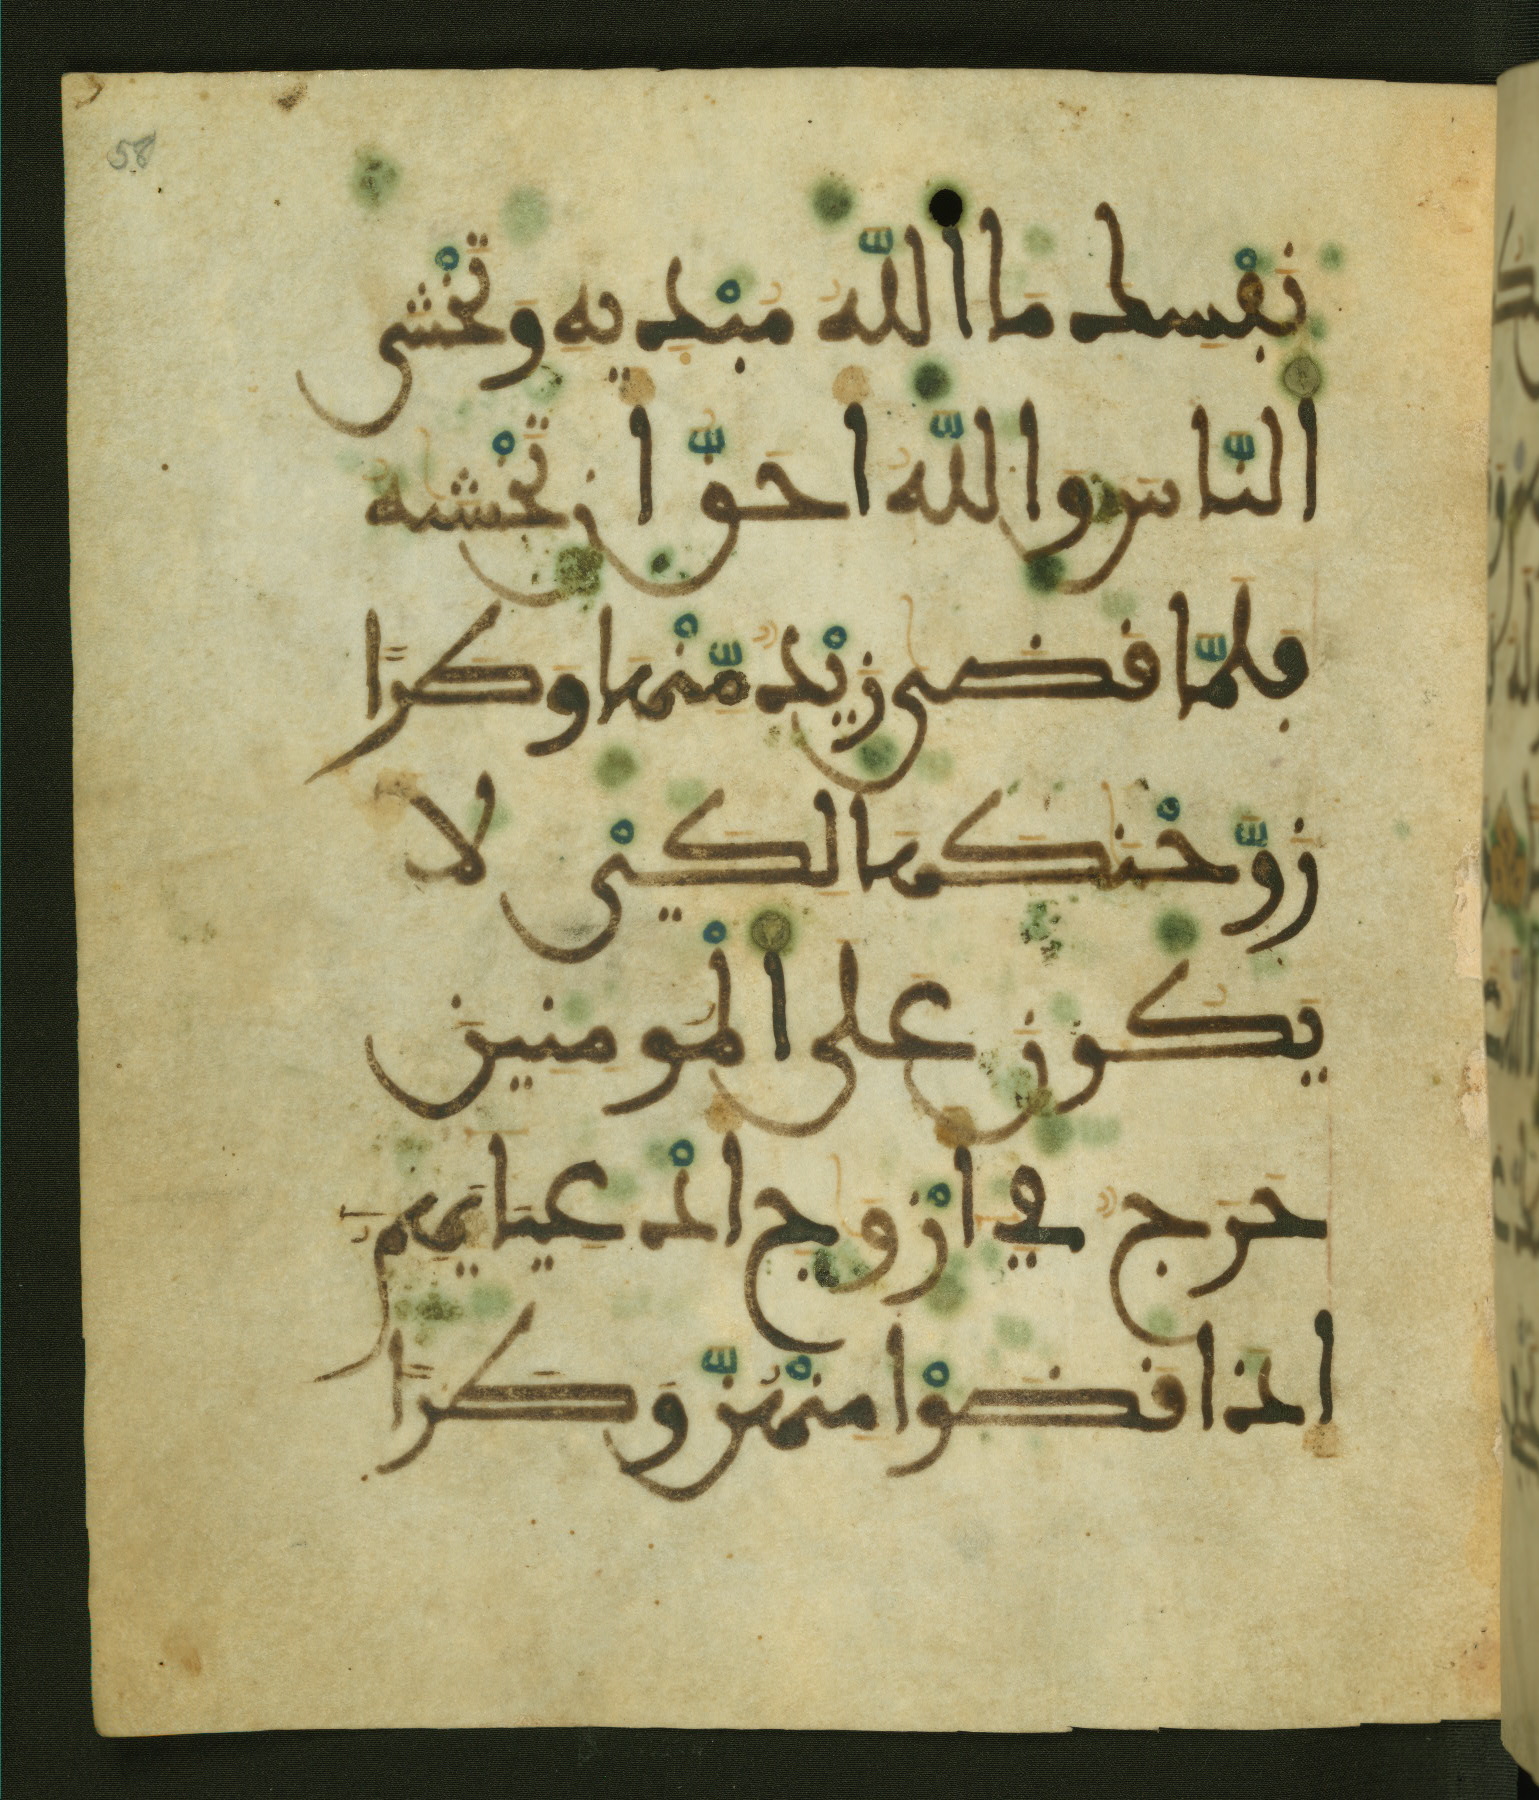 58
نَفْسِكَ مَا اَللَّهُ مُبْدِيهِ وَتَخْشَى
اَلنَّاسَ وَاللَّهُ أَحَقُّ أَن تَخْشَىٰهُ
فَلَمَّا قَضَىٰ زَيْدٌ مِّنْهَا وَطَرًا
زَوَّجْنَٰكَهَا لِكَيْ لَا
يَكُونَ عَلَى اَلْمُومِنِينَ
حَرَجٌ فِي أَزْوَٰجِ أَدْعِيَائِهِمُ
إِذَا قَضَوْا مِنْهُنَّ وَطَرًا